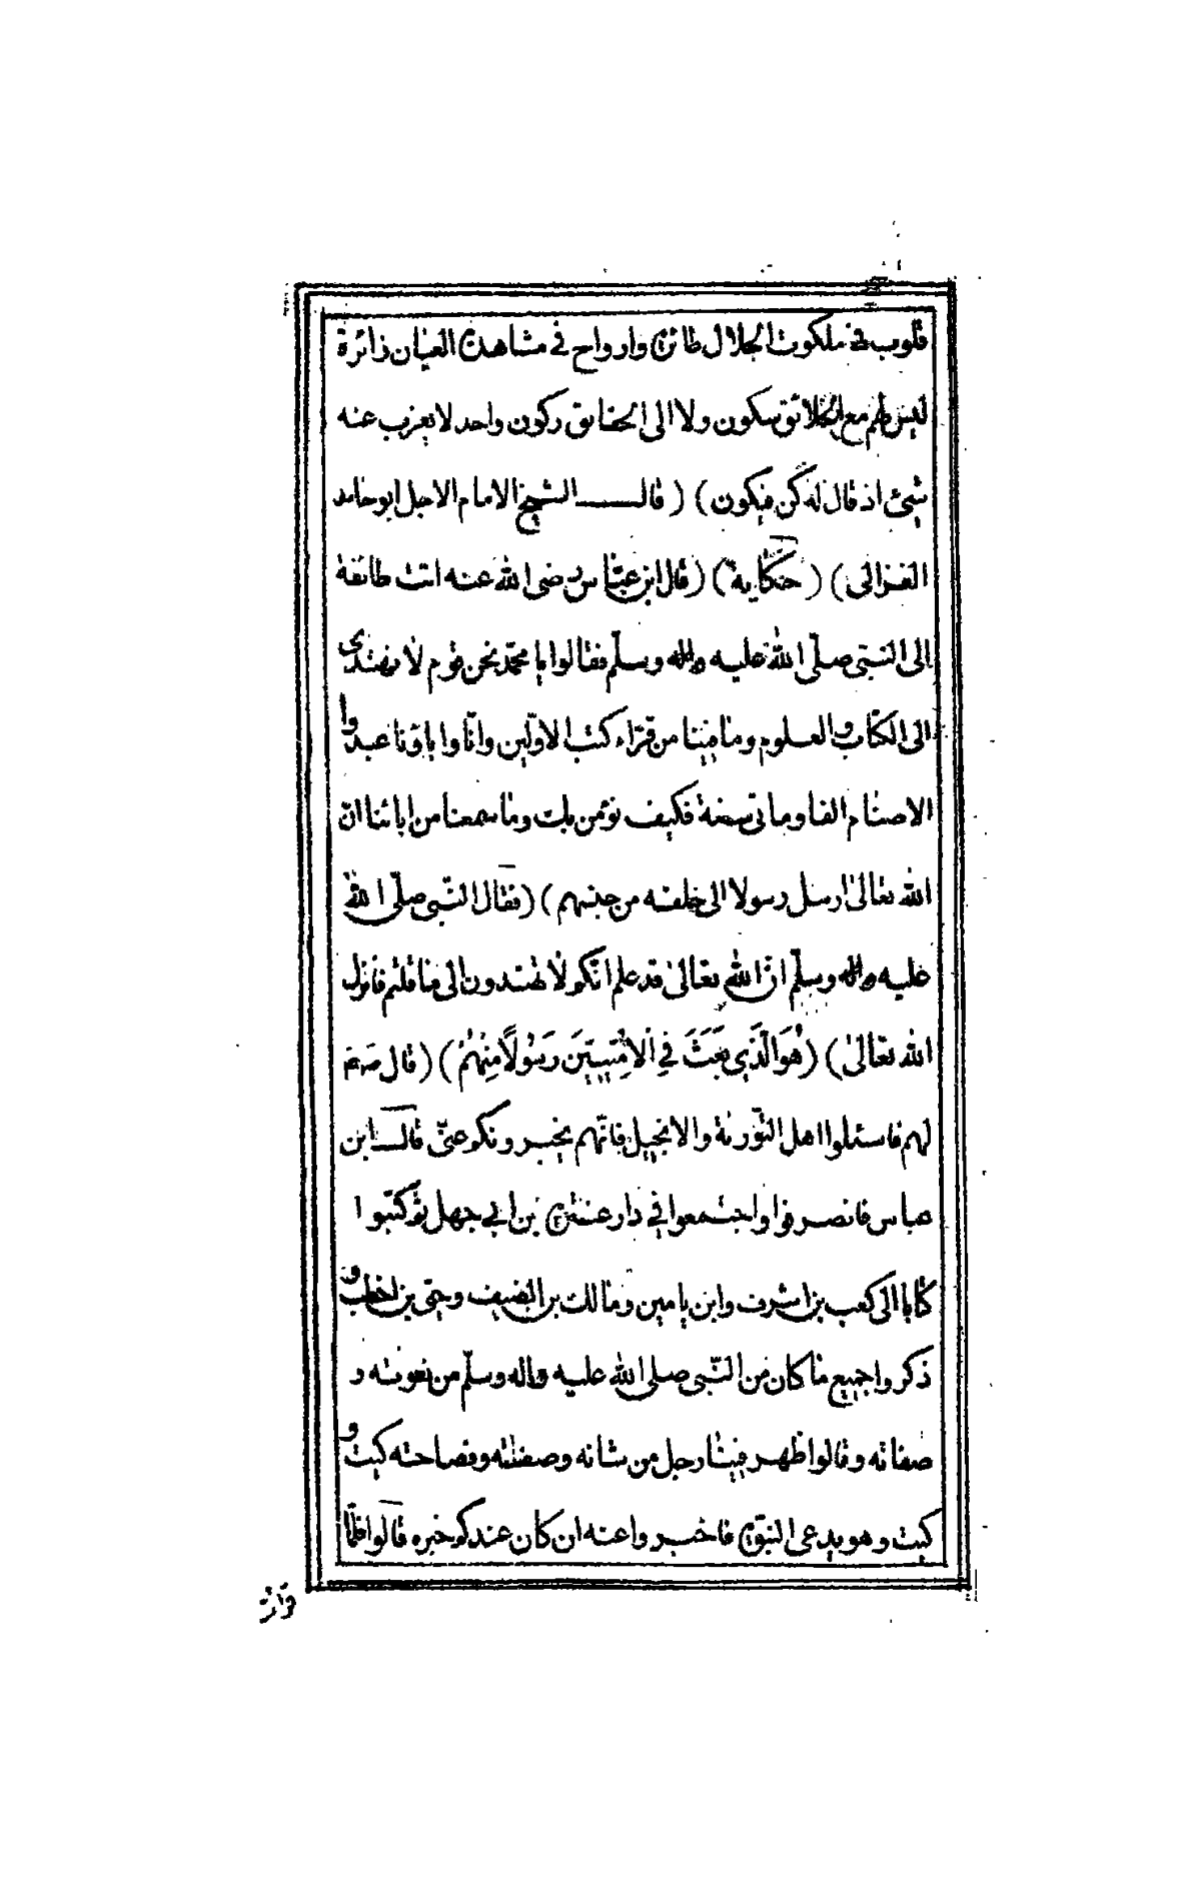 قلوب في ملكوت الجلال طائرة وارواح في مشاهدة العيان زائرة
ليس لهم مع الخلائق سكون ولا الى الحقايق ركون واحد لا يعزب عنه
شيئ اذ قال له كن فيكون ) ( قال الشيخ الامام الاجل ابو حامد
الغزالى ) ( حكاية ) ( قال ابن عباس رضى الله عنه اتت طائفة
الى النبى صلّى الله عليه واله وسلّم فقالوا يا محمّد نحن قوم لا نهتدى
الى الكتاب والعلوم وما فينا من قرّاء كتب الاوّلين وانّا وابائونا عبدوا
الاصنام الفا وماتى سنة فكيف نؤمن بك وما سمعنا من ابائنا انّ
الله تعالى ارسل رسولا الى خلقه من جنسهم ) ( فقال النّبى صلّى الله
عليه واله وسلّم انّ الله تعالى قد علم انّكم لا تهتدون الى ما قلتم فانزل
الله تعالىٰ ) ( هُوَ الَّذِي بَعَثَ فِي الْاُمِّيِيّنَ رَسُولًا مِنْهُمْ ) ( قال صم
لهم فاسئلوا اهل التّورية والانجيل فانّهم يخبرونكم عنّى قال ابن
عباس فانصرفوا واجتمعوا في دار عكرمة بن ابي جهل ثمّ كتبوا
كتابا الى كعب بن اشرف وابن يامين ومالك بن الضيف وحيّى بن اخطب و
ذكروا جميع ما كان من النّبى صلى الله عليه واله وسلّم من نعوته و
صفاته وقالوا ظهر فينا رجل من شانه وصفته وفصاحته كيت و
كيت وهو يدعى النبوّة فاخبروا عنه ان كان عندكم خبره قالوا فلمّا